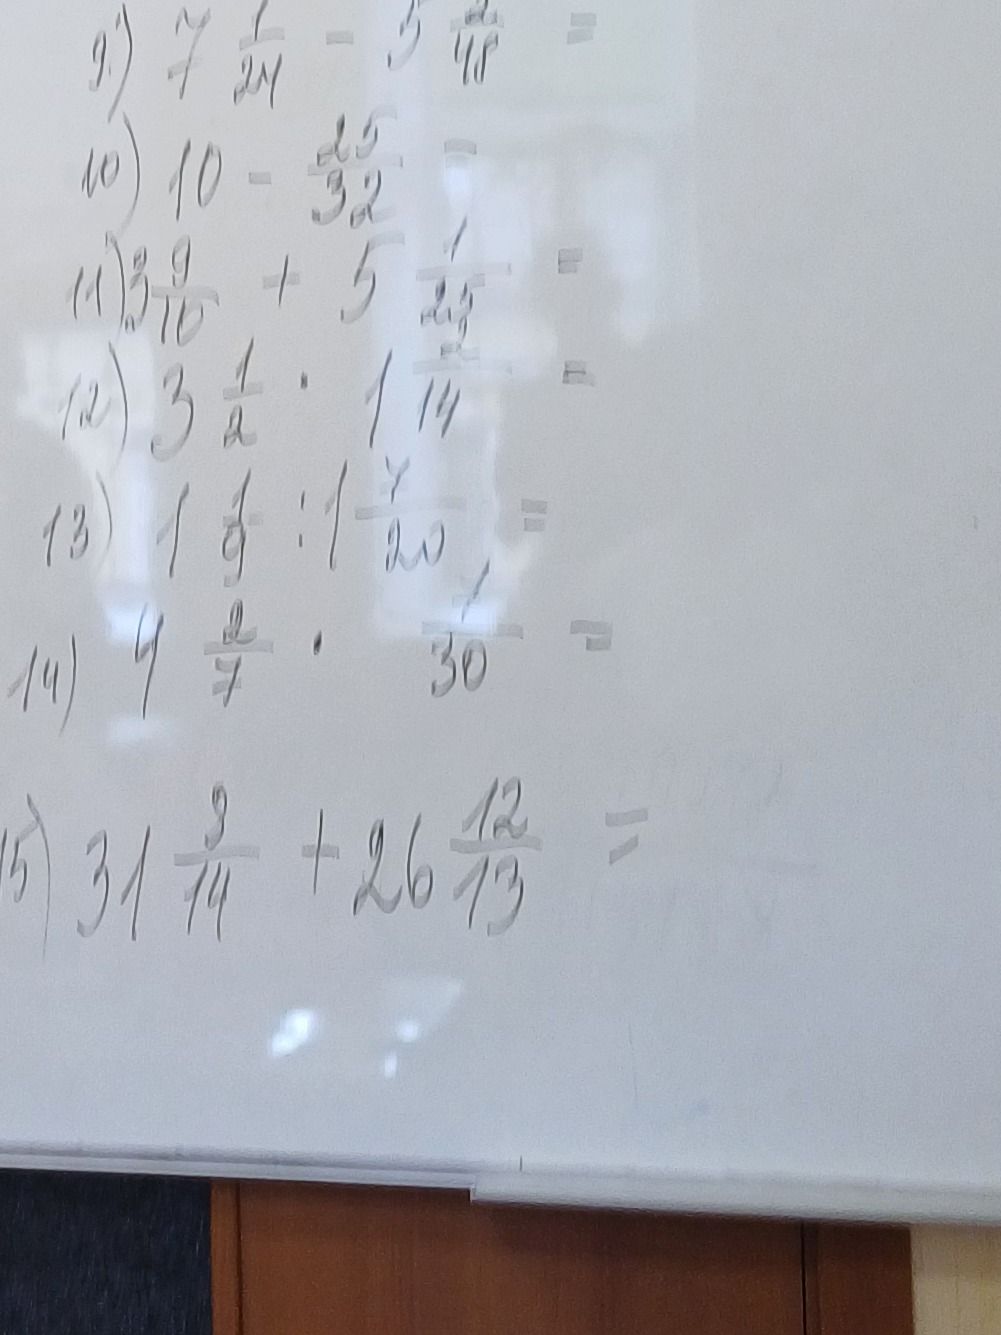 9) 7 1/24 - 5 2/48 =
10) 10 - 25/32 =
11) 3 9/10 + 5 1/25 =
12) 3 1/2 · 1 2/14 =
13) 1 1/9 : 1 7/20 =
14) 4 2/7 · 1/30 =
15) 31 9/14 + 26 12/13 =